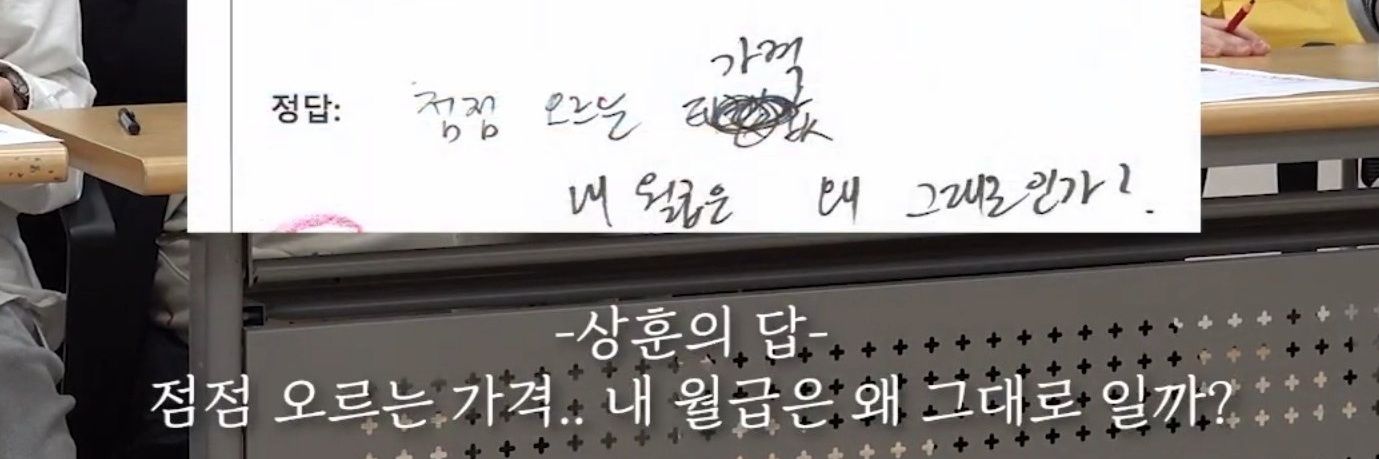 가격
정답: 점점 오르는
내 월급은 왜 그대로인가?
-상훈의 답-
점점 오르는 가격.. 내 월급은 왜 그대로 일까?